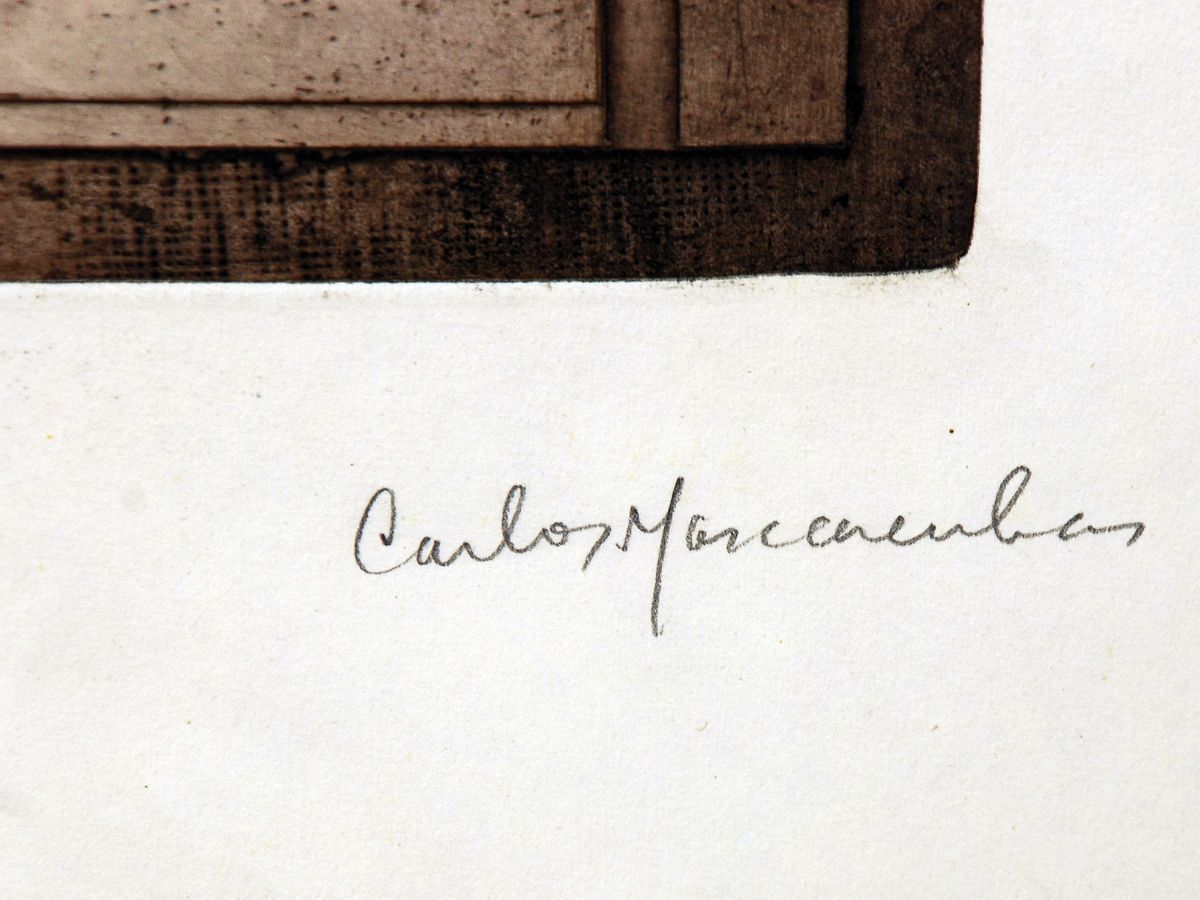 Carlos Mascarenhas